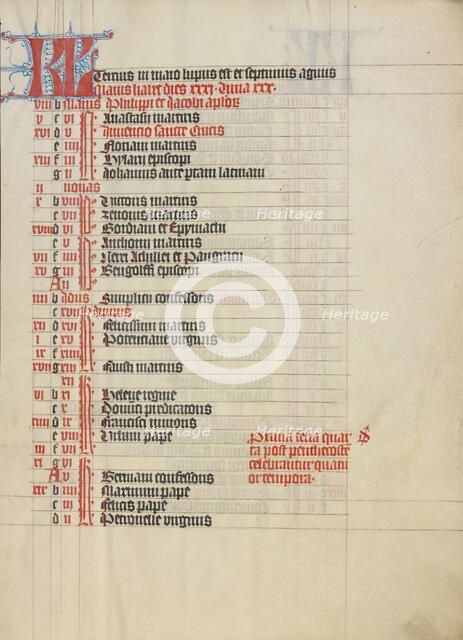 KL Tercius in maio lupus est et septimus agnus
Maius habet dies xxxi. luna xxx.
viii b Maius Philippi et Jacobi aplor
v c vi Anastasii martiris
xvi d v Inventio sancte Crucis
e iiii Floriani martiris
xiii f iii Hylarii episcopi
g ii Johannis ante portam latinam
ii nonas
x b viii Victoris martiris
c vii zenonis martiris
xviii d vi Gordiani et Epymachi
e v Anthonii martiris
vii f iiii Nerei Achillei et Pangracii
xv g iii Gengolffi episcopi
A ii
iiii b Idus Simplicii confessoris
c xvii Junius
xii d xvi Felicissimi martiris
i e xv Potenciane virginis
ix f xiiii
xvii g xiii Fausti martiris
xii
vi b xi Helene regine
c x Dominici predicatoris
xiiii d ix Francisci minoris
iii e viii Urbani pape
f vii
xi g vi
A v Germani confessoris
xix b iiii Maximini pape
c iii Felicis pape
d ii Petronelle virginis
Prima feria quar
ta post penthecoste
celebrantur quatu
or tempora.
Heritage
Heritage
Heritage
Heritage
Heritage
Heritage
©